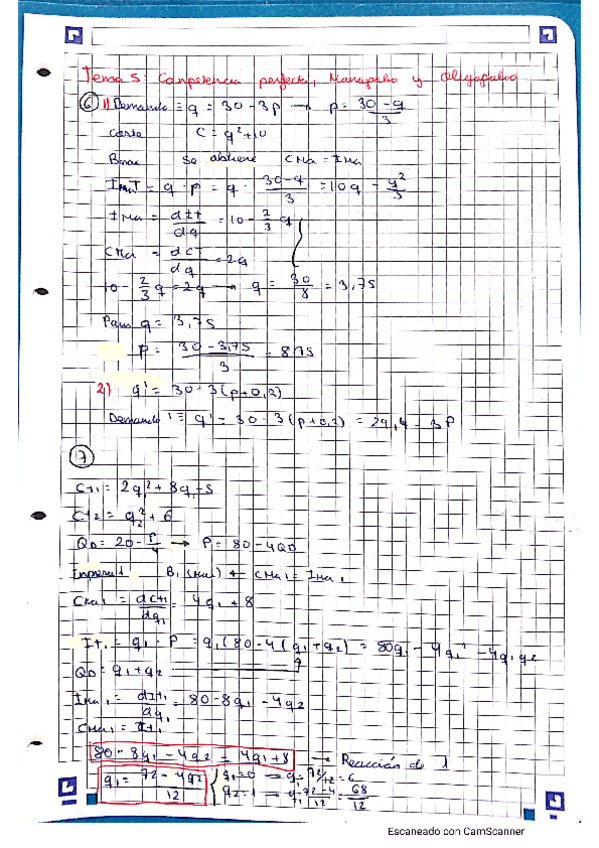 Tema 5: Competencia perfecta, Monopolio y oligopolio
6 1) Demanda = q = 30 - 3p → p = 30 - q / 3
Coste C = q² + 10
Bmax se obtiene CMa = IMa
IMaT = q · p = q · 30 - q / 3 = 10q - q² / 3
IMa = dIt / dq = 10 - 2/3 q
CMa = dCT / dq = 2q
10 - 2/3 q = 2q → q = 30 / 8 = 3,75
Para q = 3,75
p = 30 - 3,75 / 3 = 8,75
2) q' = 30 - 3(p + 0,2)
Demanda' = q' = 30 - 3(p + 0,2) = 29,4 - 3P
7
Ct1 = 2q1² + 8q1 - 5
Ct2 = q2² + 6
QD = 20 - P/4 → P = 80 - 4QD
Empresa 1 B1 (max) CMa1 = IMa1
CMa1 = dCt1 / dq1 = 4q1 + 8
It1 = q1 · P = q1(80 - 4(q1 + q2)) = 80q1 - 4q1² - 4q1q2
QD = q1 + q2 q
IMa1 = dIt1 / dq1 = 80 - 8q1 - 4q2
CMa1 = It1
80 - 8q1 - 4q2 = 4q1 + 8 → Reacción de 1
q1 = 72 - 4q2 / 12 q1=0 → q1 = 72/12 = 6
q2=1 → q1 72 - 4 / 12 = 68 / 12
Escaneado con CamScanner